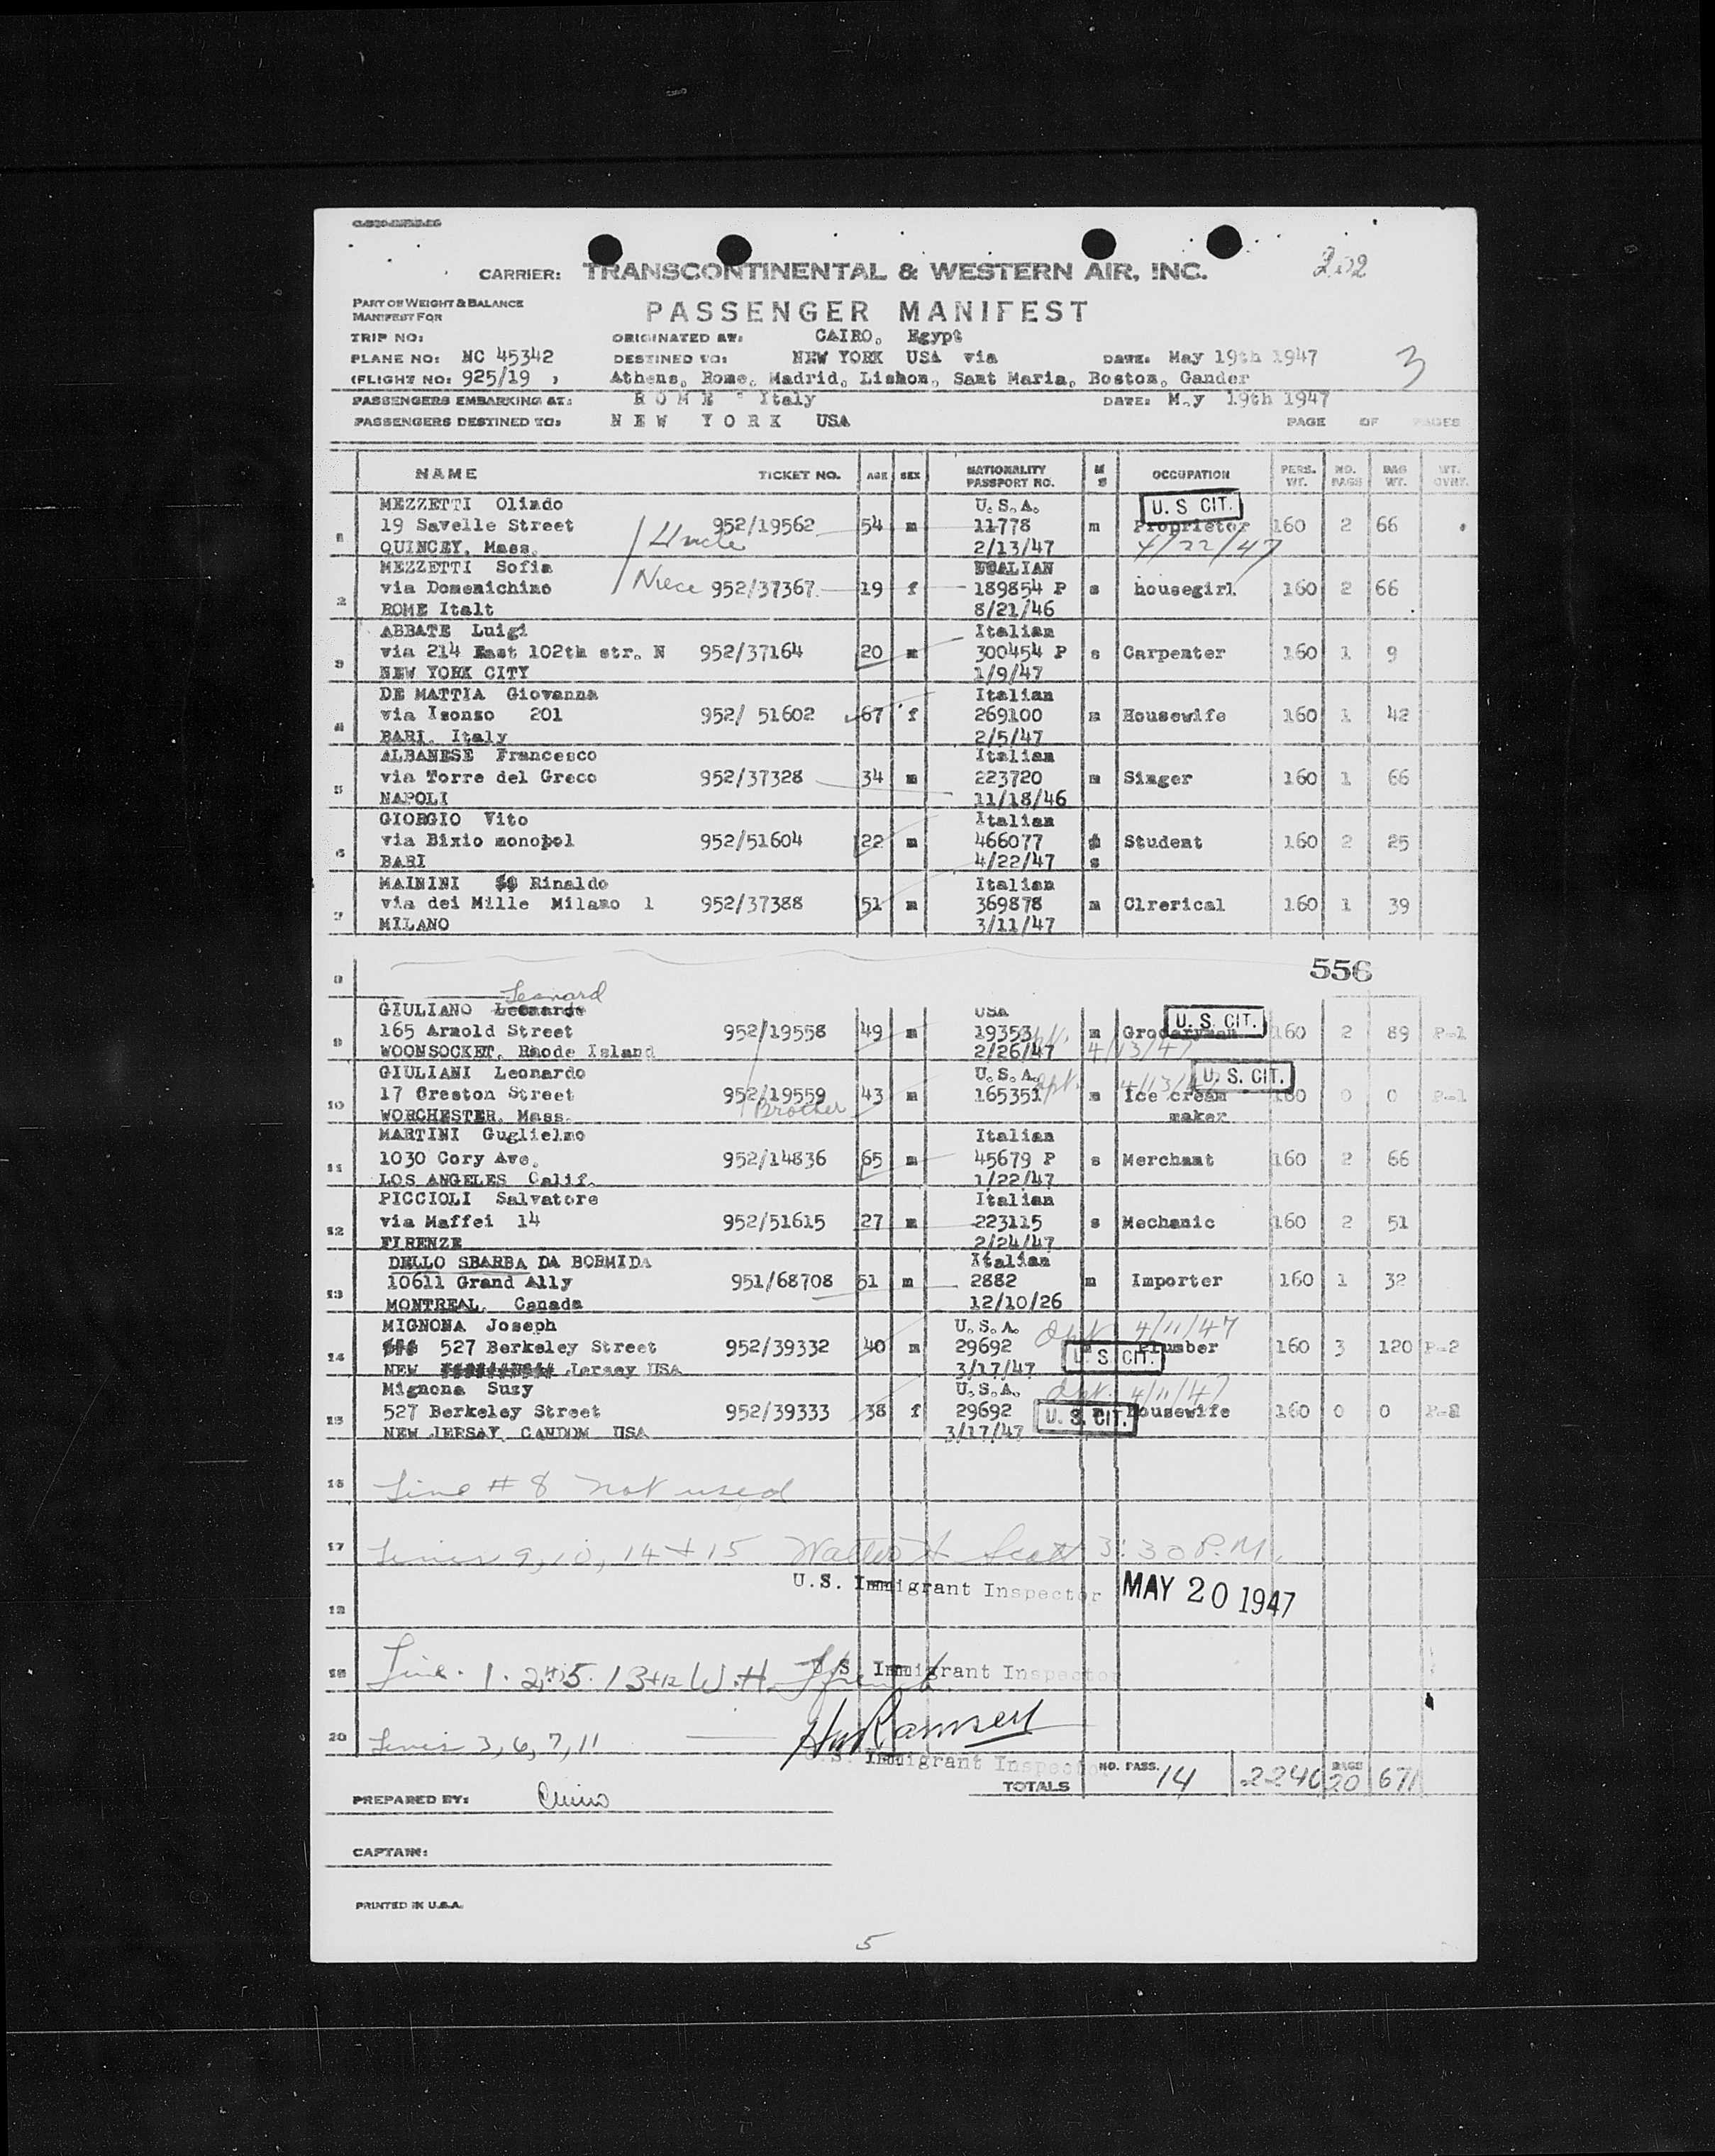 202
CARRIER: TRANSCONTINENTAL & WESTERN AIR, INC.
PART OF WEIGHT & BALANCE
MANIFEST FOR
PASSENGER MANIFEST
TRIP NO: ORIGINATED AT: CAIRO, Egypt
PLANE NO: NC 45342 DESTINED TO: NEW YORK USA via DATE: May 19th 1947
3
(FLIGHT NO: 925/19 ) Athens, Rome, Madrid, Lisbon, Sant Maria, Boston, Gander
PASSENGERS EMBARKING AT: R O M E Italy DATE: May 19th 1947
PASSENGERS DESTINED TO: N E W Y O R K USA PAGE OF PAGES
NAME TICKET NO. AGE SEX NATIONALITY PASSPORT NO. M S OCCUPATION PERS. WT. NO. BAGS BAG WT. WT. OVHT.
MEZZETTI Olindo U.S.A. U. S CIT.
1 19 Savelle Street 952/19562 54 m 11778 m Proprietor 160 2 66
QUINCEY, Mass. Uncle 2/13/47 4/22/47
MEZZETTI Sofia ITALIAN
2 via Domenichino Niece 952/37367 19 f 189854 P s housegirl 160 2 66
ROME Italt 8/21/46
ABBATE Luigi Italian
3 via 214 East 102th str. N 952/37164 20 m 300454 P s Carpenter 160 1 9
NEW YORK CITY 1/9/47
DE MATTIA Giovanna Italian
4 via Isonzo 201 952/ 51602 67 f 269100 m Housewife 160 1 42
BARI, Italy 2/5/47
ALBANESE Francesco Italian
5 via Torre del Greco 952/37328 34 m 223720 m Singer 160 1 66
NAPOLI 11/18/46
GIORGIO Vito Italian
6 via Bixio monopol 952/51604 22 m 466077 Student 160 2 25
BARI 4/22/47 s
MAININI Rinaldo Italian
7 via dei Mille Milano 1 952/37388 51 m 369878 m Clrerical 160 1 39
MILANO 3/11/47
8 556
Leonard
GIULIANO Leonardo USA U. S. CIT.
9 165 Arnold Street 952/19558 49 m 19353 m Groceryman 160 2 89 P-1
WOONSOCKET, Rhode Island 2/26/47 4/13/47
GIULIANI Leonardo U.S.A. dpt. 4/13/47 U. S. CIT.
10 17 Creston Street 952/19559 43 m 165351 m Ice cream 160 0 0 P-1
WORCHESTER, Mass. Brother maker
MARTINI Guglielmo Italian
11 1030 Cory Ave. 952/14836 65 m 45679 P s Merchant 160 2 66
LOS ANGELES Calif. 1/22/47
PICCIOLI Salvatore Italian
12 via Maffei 14 952/51615 27 m 223115 s Mechanic 160 2 51
FIRENZE 2/24/47
DELLO SBARBA DA BORMIDA Italian
13 10611 Grand Ally 951/68708 51 m 2882 m Importer 160 1 32
MONTREAL, Canada 12/10/26
MIGNONA Joseph U.S.A. dpt 4/11/47
14 527 Berkeley Street 952/39332 40 m 29692 m Plumber 160 3 120 P-2
NEW Jersey USA 3/17/47 U. S. CIT.
Mignona Suzy U.S.A. dpt. 4/11/47
15 527 Berkeley Street 952/39333 38 f 29692 U. S. CIT. housewife 160 0 0 P-2
NEW JERSAY CANDOM USA 3/17/47
16 Line # 8 not used
17 Lines 9, 10, 14 + 15 Walter H Scott 3:30 P.M.
U.S. Immigrant Inspector MAY 20 1947
18
19 Line. 1. 2, 4, 5. 13+12 W.H. U.S. Immigrant Inspector
20 Lines 3, 6, 7, 11 Ramsey
U.S. Immigrant Inspector
TOTALS NO. PASS. 14 2240 BAGS 20 671
PREPARED BY:
CAPTAIN:
PRINTED IN U.S.A.
5